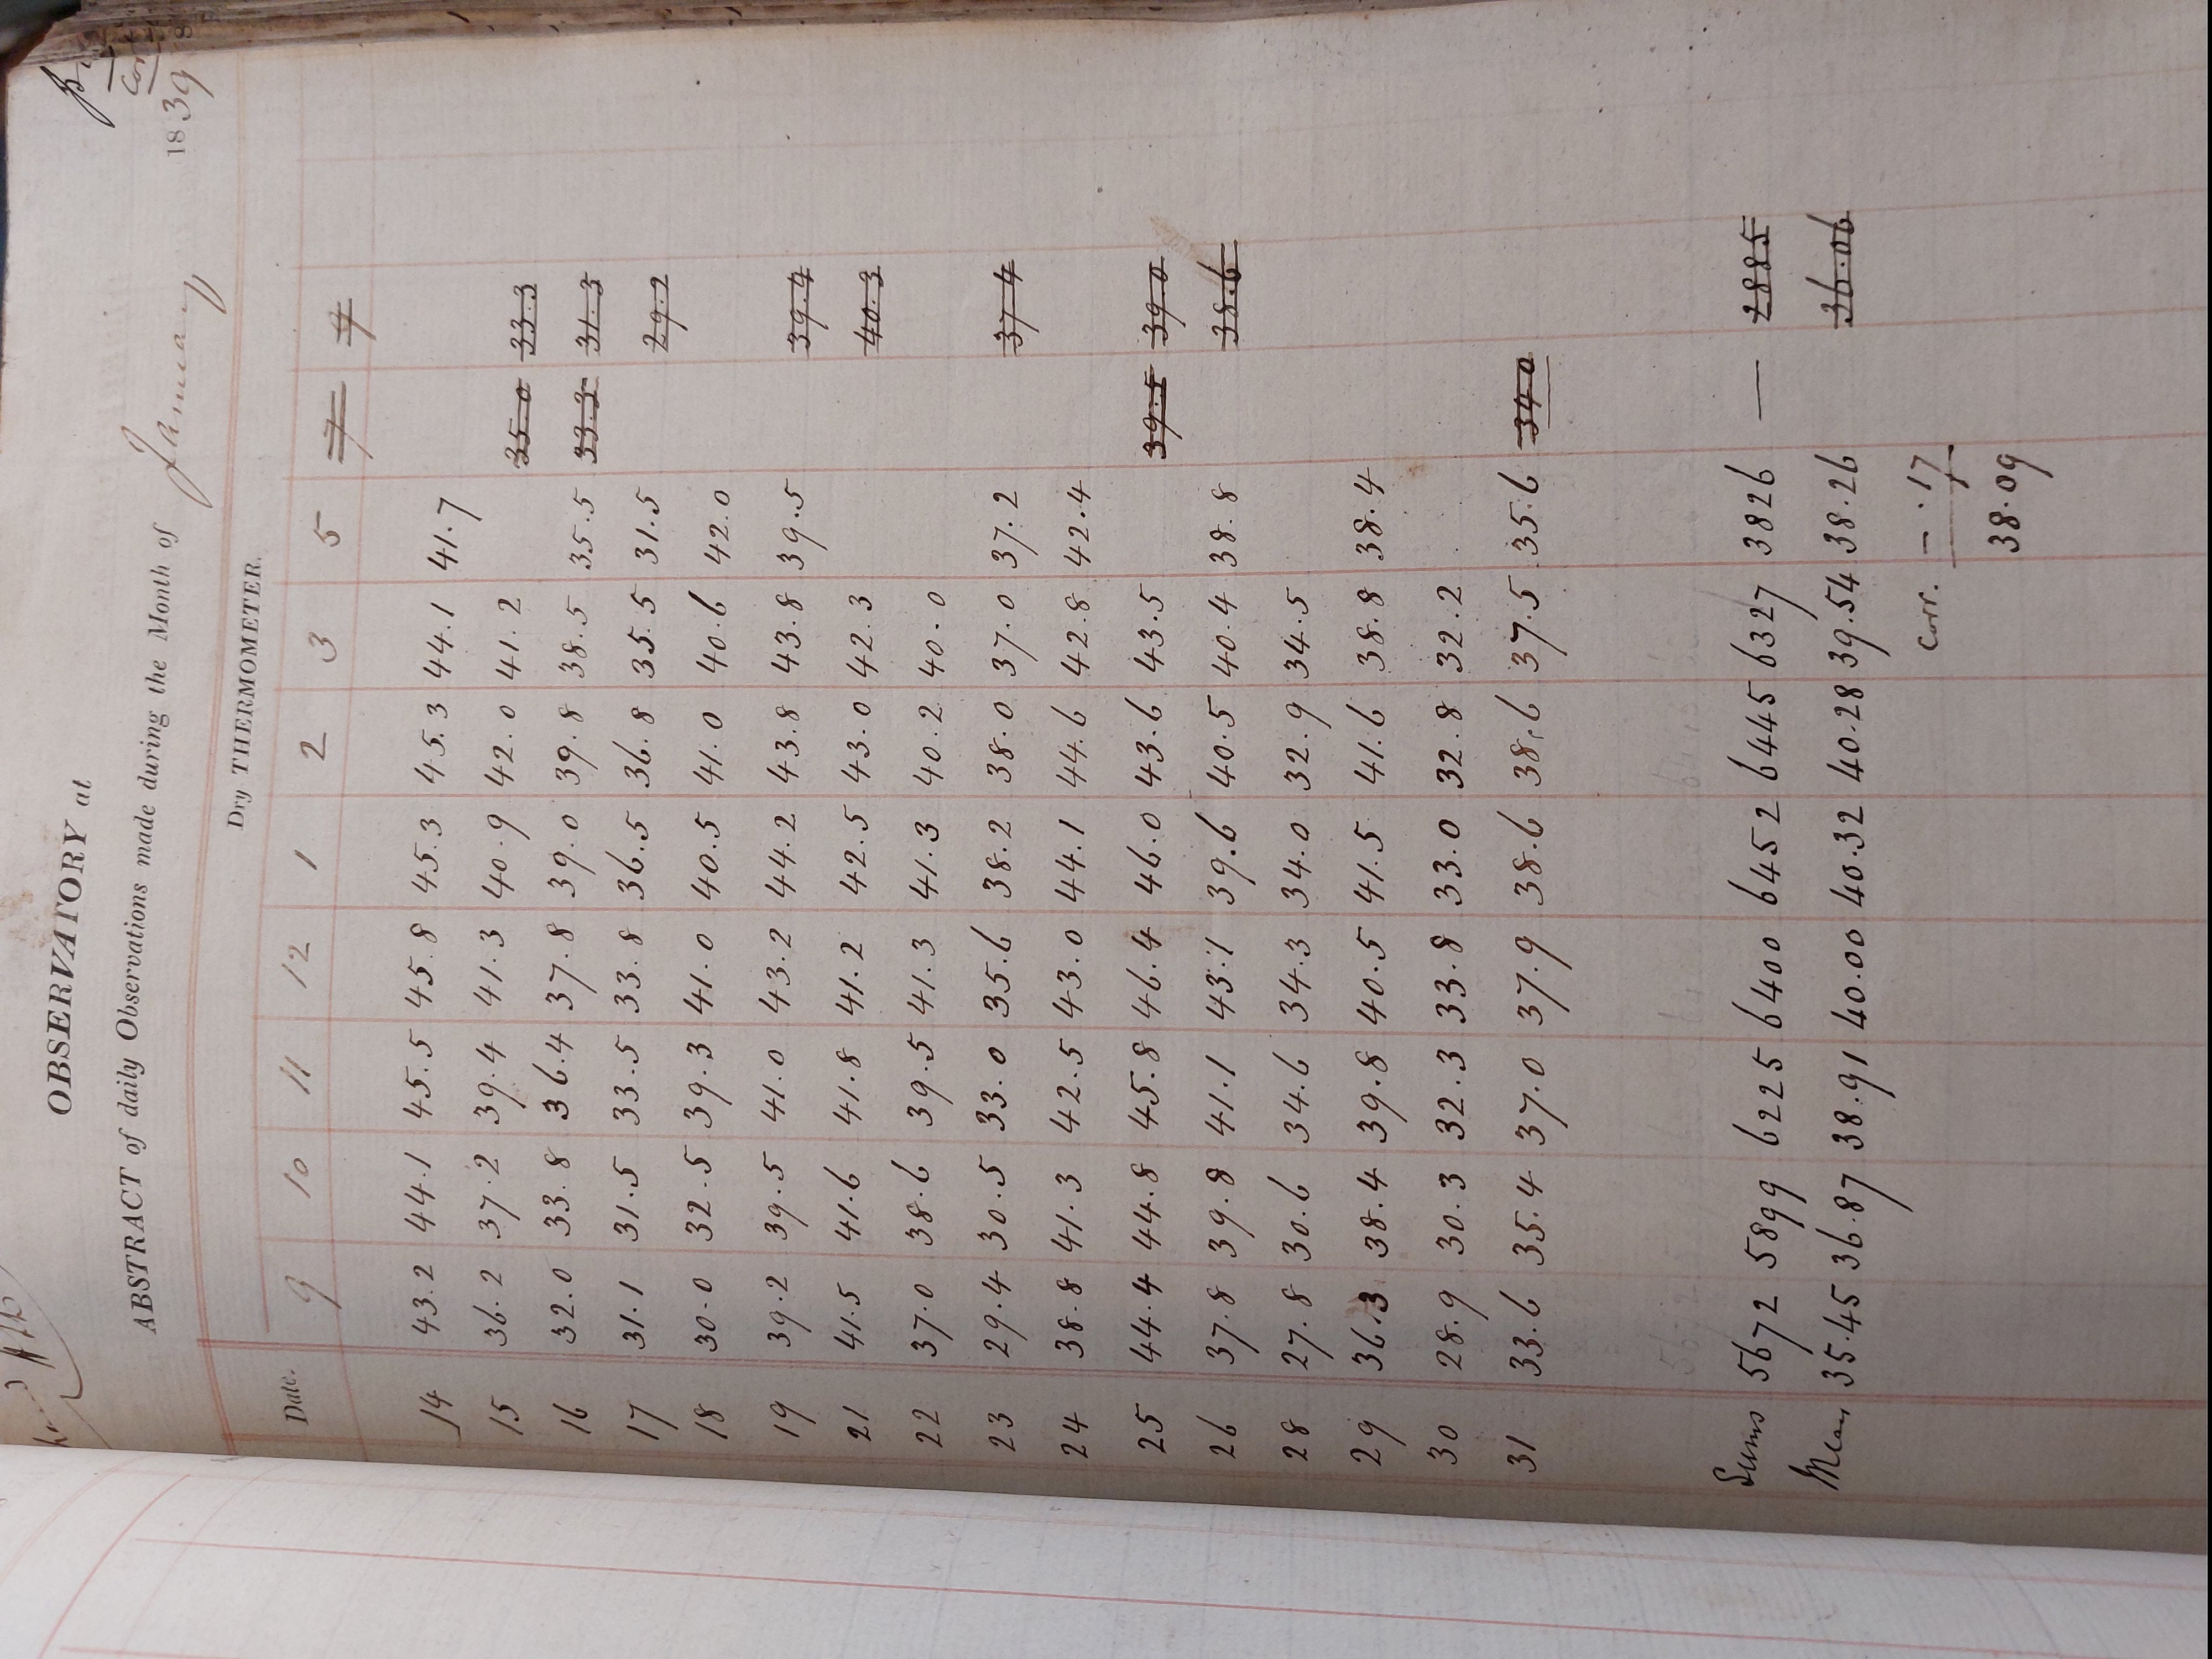 OBSERVATORY at
ABSTRACT of daily Observations made during the Month of January 1839
Dry THERMOMETER.
Date. 9 10 11 12 1 2 3 5 7 9
14 43.2 44.1 45.5 45.8 45.3 45.3 44.1 41.7
15 36.2 37.2 39.4 41.3 40.9 42.0 41.2 35.0 33.3
16 32.0 33.8 36.4 37.8 39.0 39.8 38.5 35.5 33.3 31.3
17 31.1 31.5 33.5 33.8 36.5 36.8 35.5 31.5 29.2
18 30.0 32.5 39.3 41.0 40.5 41.0 40.6 42.0
19 39.2 39.5 41.0 43.2 44.2 43.8 43.8 39.5 39.4
21 41.5 41.6 41.8 41.2 42.5 43.0 42.3 40.3
22 37.0 38.6 39.5 41.3 41.3 40.2 40.0
23 29.4 30.5 33.0 35.6 38.2 38.0 37.0 37.2 37 4
24 38.8 41.3 42.5 43.0 44.1 44.6 42.8 42.4
25 44.4 44.8 45.8 46.4 46.0 43.6 43.5 39.5 39.0
26 37.8 39.8 41.1 43.1 39.6 40.5 40.4 38.8 38.6
28 27.8 30.6 34.6 34.3 34.0 32.9 34.5
29 36.3 38.4 39.8 40.5 41.5 41.6 38.8 38.4
30 28.9 30.3 32.3 33.8 33.0 32.8 32.2
31 33.6 35.4 37.0 37.9 38.6 38.6 37.5 35.6 34 0
Sums 5672 5899 6225 6400 6452 6445 6327 3826 — 2885
Mean 35.45 36.87 38.91 40.00 40.32 40.28 39.54 38.26 36.06
Corr. - .17
38.09